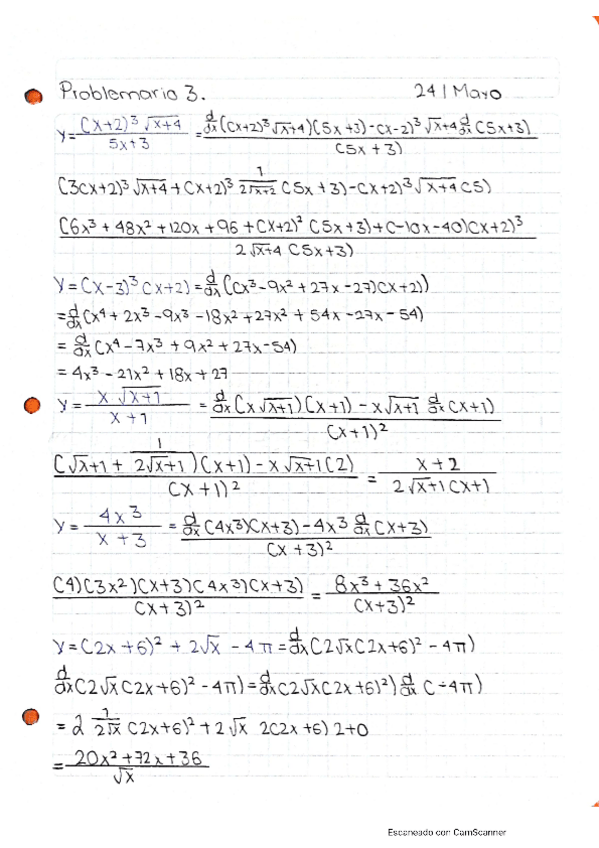 Problemario 3. 24 | Mayo
y = (x+2)³ √x+4 / 5x+3 = d/dx((x+2)³ √x+4)(5x+3) - (x-2)³ √x+4 d/dx (5x+3) / (5x+3)
(3(x+2)³ √x+4 + (x+2)³ 1/2√x+2 (5x+3) - (x+2)³ √x+4 (5)
(6x³ + 48x² + 120x + 96 + (x+2)² (5x+3) + (-10x-40)(x+2)³ / 2√x+4 (5x+3)
y = (x-3)³ (x+2) = d/dx ((x³ - 9x² + 27x - 27)(x+2))
= d/dx (x⁴ + 2x³ - 9x³ - 18x² + 27x² + 54x - 27x - 54)
= d/dx (x⁴ - 7x³ + 9x² + 27x - 54)
= 4x³ - 21x² + 18x + 27
y = x √x+1 / x+1 = d/dx (x √x+1)(x+1) - x √x+1 d/dx (x+1) / (x+1)²
(√x+1 + 1/2√x+1)(x+1) - x √x+1 (2) / (x+1)² = x+2 / 2√x+1 (x+1)
y = 4x³ / x+3 = d/dx (4x³)(x+3) - 4x³ d/dx (x+3) / (x+3)²
(4)(3x²)(x+3)(4x³)(x+3) / (x+3)² = 8x³ + 36x² / (x+3)²
y = (2x+6)² + 2√x - 4π = d/dx (2√x (2x+6)² - 4π)
d/dx (2√x (2x+6)² - 4π) = d/dx (2√x (2x+6)²) d/dx (-4π)
= 2 1/2√x (2x+6)² + 2√x 2(2x+6) 2+0
= 20x² + 72x + 36 / √x
Escaneado con CamScanner